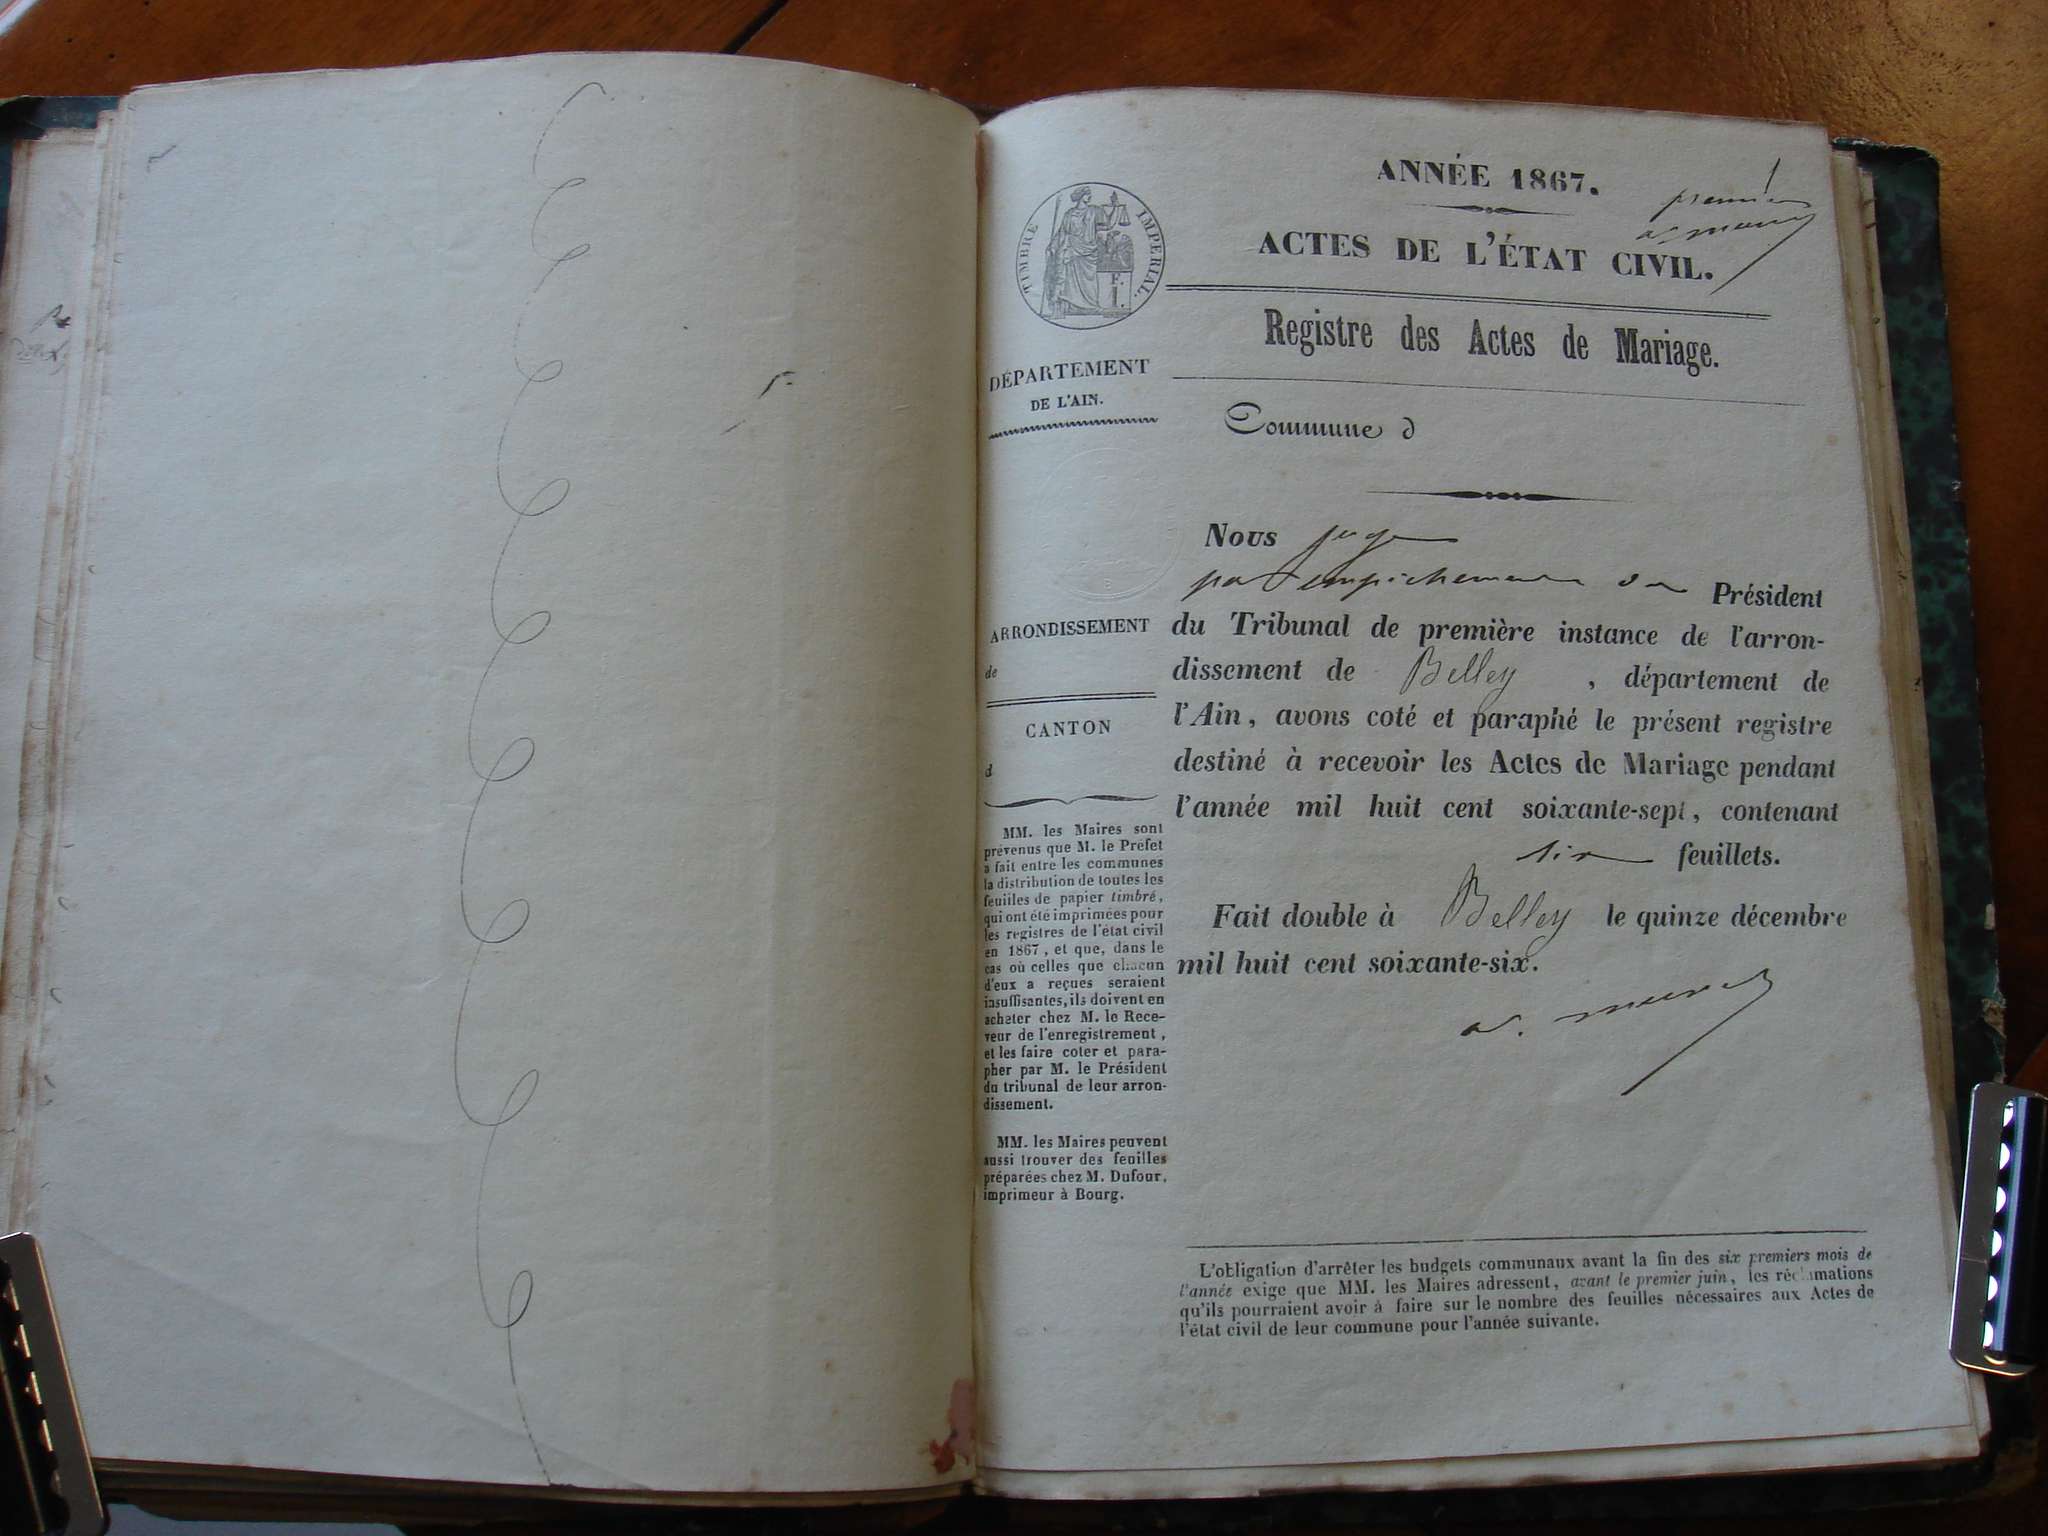 ANNÉE 1867.
premier
ACTES DE L'ÉTAT CIVIL.
TIMBRE IMPERIAL.
F.
I.
Registre des Actes de Mariage.
DÉPARTEMENT
DE L'AIN.
Commune d
Nous juge
par empêchement du Président
du Tribunal de première instance de l'arron-
dissement de Belley, département de
l'Ain, avons coté et paraphé le présent registre
destiné à recevoir les Actes de Mariage pendant
l'année mil huit cent soixante-sept, contenant
six feuillets.
Fait double à Belley le quinze décembre
mil huit cent soixante-six.
ARRONDISSEMENT
de
CANTON
d
MM. les Maires sont
prévenus que M. le Préfet
a fait entre les communes
la distribution de toutes les
feuilles de papier timbré,
qui ont été imprimées pour
les registres de l'état civil
en 1867, et que, dans le
cas où celles que chacun
d'eux a reçues seraient
insuffisantes, ils doivent en
acheter chez M. le Rece-
veur de l'enregistrement,
et les faire coter et para-
pher par M. le Président
du tribunal de leur arron-
dissement.
MM. les Maires peuvent
aussi trouver des feuilles
préparées chez M. Dufour,
imprimeur à Bourg.
L'obligation d'arrêter les budgets communaux avant la fin des six premiers mois de
l'année exige que MM. les Maires adressent, avant le premier juin, les réclamations
qu'ils pourraient avoir à faire sur le nombre des feuilles nécessaires aux Actes de
l'état civil de leur commune pour l'année suivante.